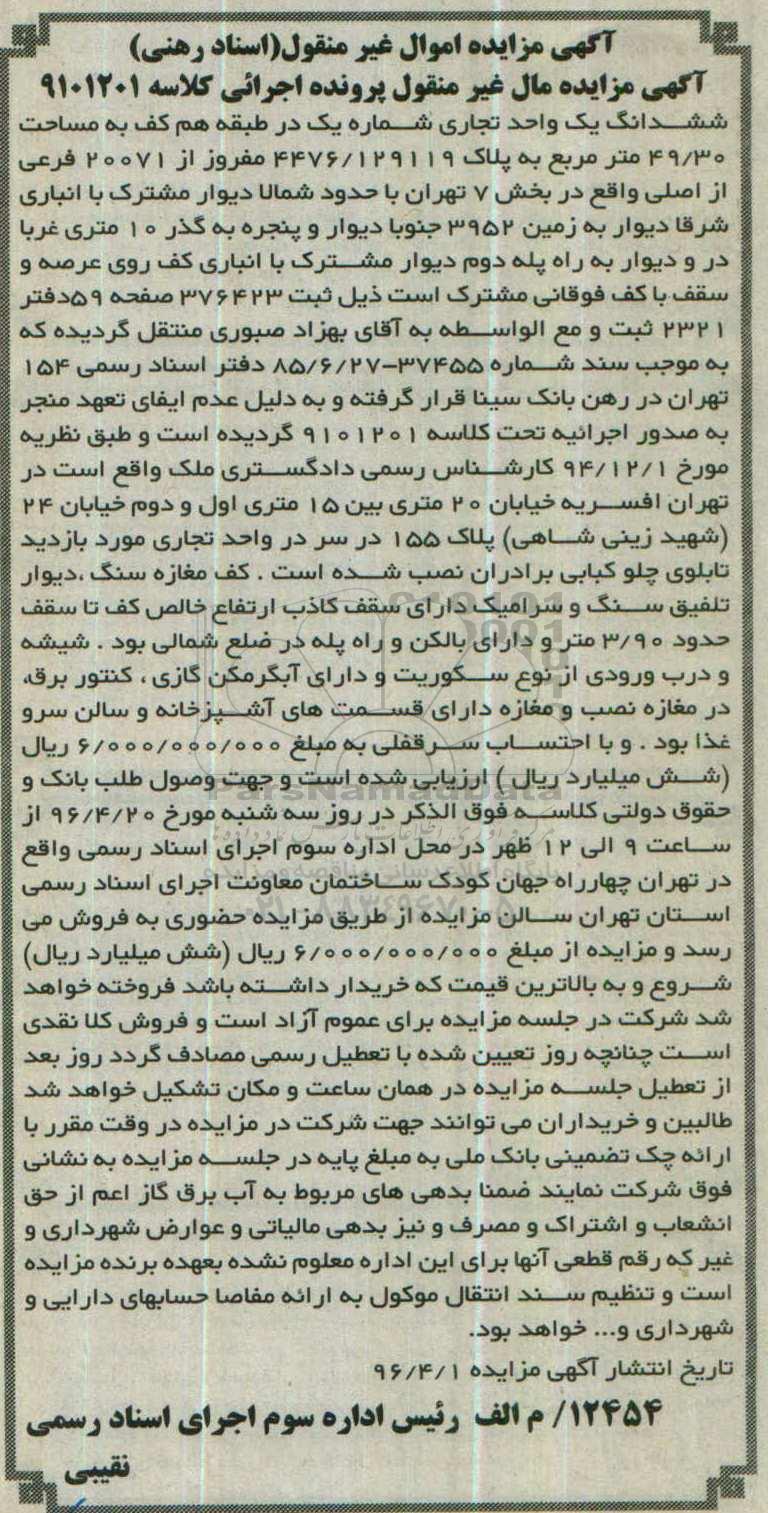 آگهی مزایده اموال غیر منقول(اسناد رهنی)
آگهی مزایده مال غیر منقول پرونده اجرائی کلاسه ۹۱۰۱۲۰۱
ششدانگ یک واحد تجاری شماره یک در طبقه هم کف به مساحت
۴۹/۳۰ متر مربع به پلاک ۴۴۷۶/۱۲۹۱۱۹ مفروز از ۲۰۰۷۱ فرعی
از اصلی واقع در بخش ۷ تهران با حدود شمالا دیوار مشترک با انباری
شرقا دیوار به زمین ۳۹۵۲ جنوبا دیوار و پنجره به گذر ۱۰ متری غربا
در و دیوار به راه پله دوم دیوار مشترک با انباری کف روی عرصه و
سقف با کف فوقانی مشترک است ذیل ثبت ۳۷۶۴۲۳ صفحه ۵۹دفتر
۲۳۲۱ ثبت و مع الواسطه به آقای بهزاد صبوری منتقل گردیده که
به موجب سند شماره ۳۷۴۵۵-۸۵/۶/۲۷ دفتر اسناد رسمی ۱۵۴
تهران در رهن بانک سینا قرار گرفته و به دلیل عدم ایفای تعهد منجر
به صدور اجرائیه تحت کلاسه ۹۱۰۱۲۰۱ گردیده است و طبق نظریه
مورخ ۹۴/۱۲/۱ کارشناس رسمی دادگستری ملک واقع است در
تهران افسریه خیابان ۲۰ متری بین ۱۵ متری اول و دوم خیابان ۲۴
(شهید زینی شاهی) پلاک ۱۵۵ در سر در واحد تجاری مورد بازدید
تابلوی چلو کبابی برادران نصب شده است . کف مغازه سنگ ،دیوار
تلفیق سنگ و سرامیک دارای سقف کاذب ارتفاع خالص کف تا سقف
حدود ۳/۹۰ متر و دارای بالکن و راه پله در ضلع شمالی بود . شیشه
و درب ورودی از نوع سکوریت و دارای آبگرمکن گازی ، کنتور برق،
در مغازه نصب و مغازه دارای قسمت های آشپزخانه و سالن سرو
غذا بود . و با احتساب سرقفلی به مبلغ ۶/۰۰۰/۰۰۰/۰۰۰ ریال
(شش میلیارد ریال ) ارزیابی شده است و جهت وصول طلب بانک و
حقوق دولتی کلاسه فوق الذکر در روز سه شنبه مورخ ۹۶/۴/۲۰ از
ساعت ۹ الی ۱۲ ظهر در محل اداره سوم اجرای اسناد رسمی واقع
در تهران چهارراه جهان کودک ساختمان معاونت اجرای اسناد رسمی
استان تهران سالن مزایده از طریق مزایده حضوری به فروش می
رسد و مزایده از مبلغ ۶/۰۰۰/۰۰۰/۰۰۰ ریال (شش میلیارد ریال)
شروع و به بالاترین قیمت که خریدار داشته باشد فروخته خواهد
شد شرکت در جلسه مزایده برای عموم آزاد است و فروش کلا نقدی
است چنانچه روز تعیین شده با تعطیل رسمی مصادف گردد روز بعد
از تعطیل جلسه مزایده در همان ساعت و مکان تشکیل خواهد شد
طالبین و خریداران می توانند جهت شرکت در مزایده در وقت مقرر با
ارائه چک تضمینی بانک ملی به مبلغ پایه در جلسه مزایده به نشانی
فوق شرکت نمایند ضمنا بدهی های مربوط به آب برق گاز اعم از حق
انشعاب و اشتراک و مصرف و نیز بدهی مالیاتی و عوارض شهرداری و
غیر که رقم قطعی آنها برای این اداره معلوم نشده بعهده برنده مزایده
است و تنظیم سند انتقال موکول به ارائه مفاصا حسابهای دارایی و
شهرداری و... خواهد بود.
تاریخ انتشار آگهی مزایده ۹۶/۴/۱
۱۲۴۵۴/ م الف رئیس اداره سوم اجرای اسناد رسمی
نقیبی
ParsNamadData